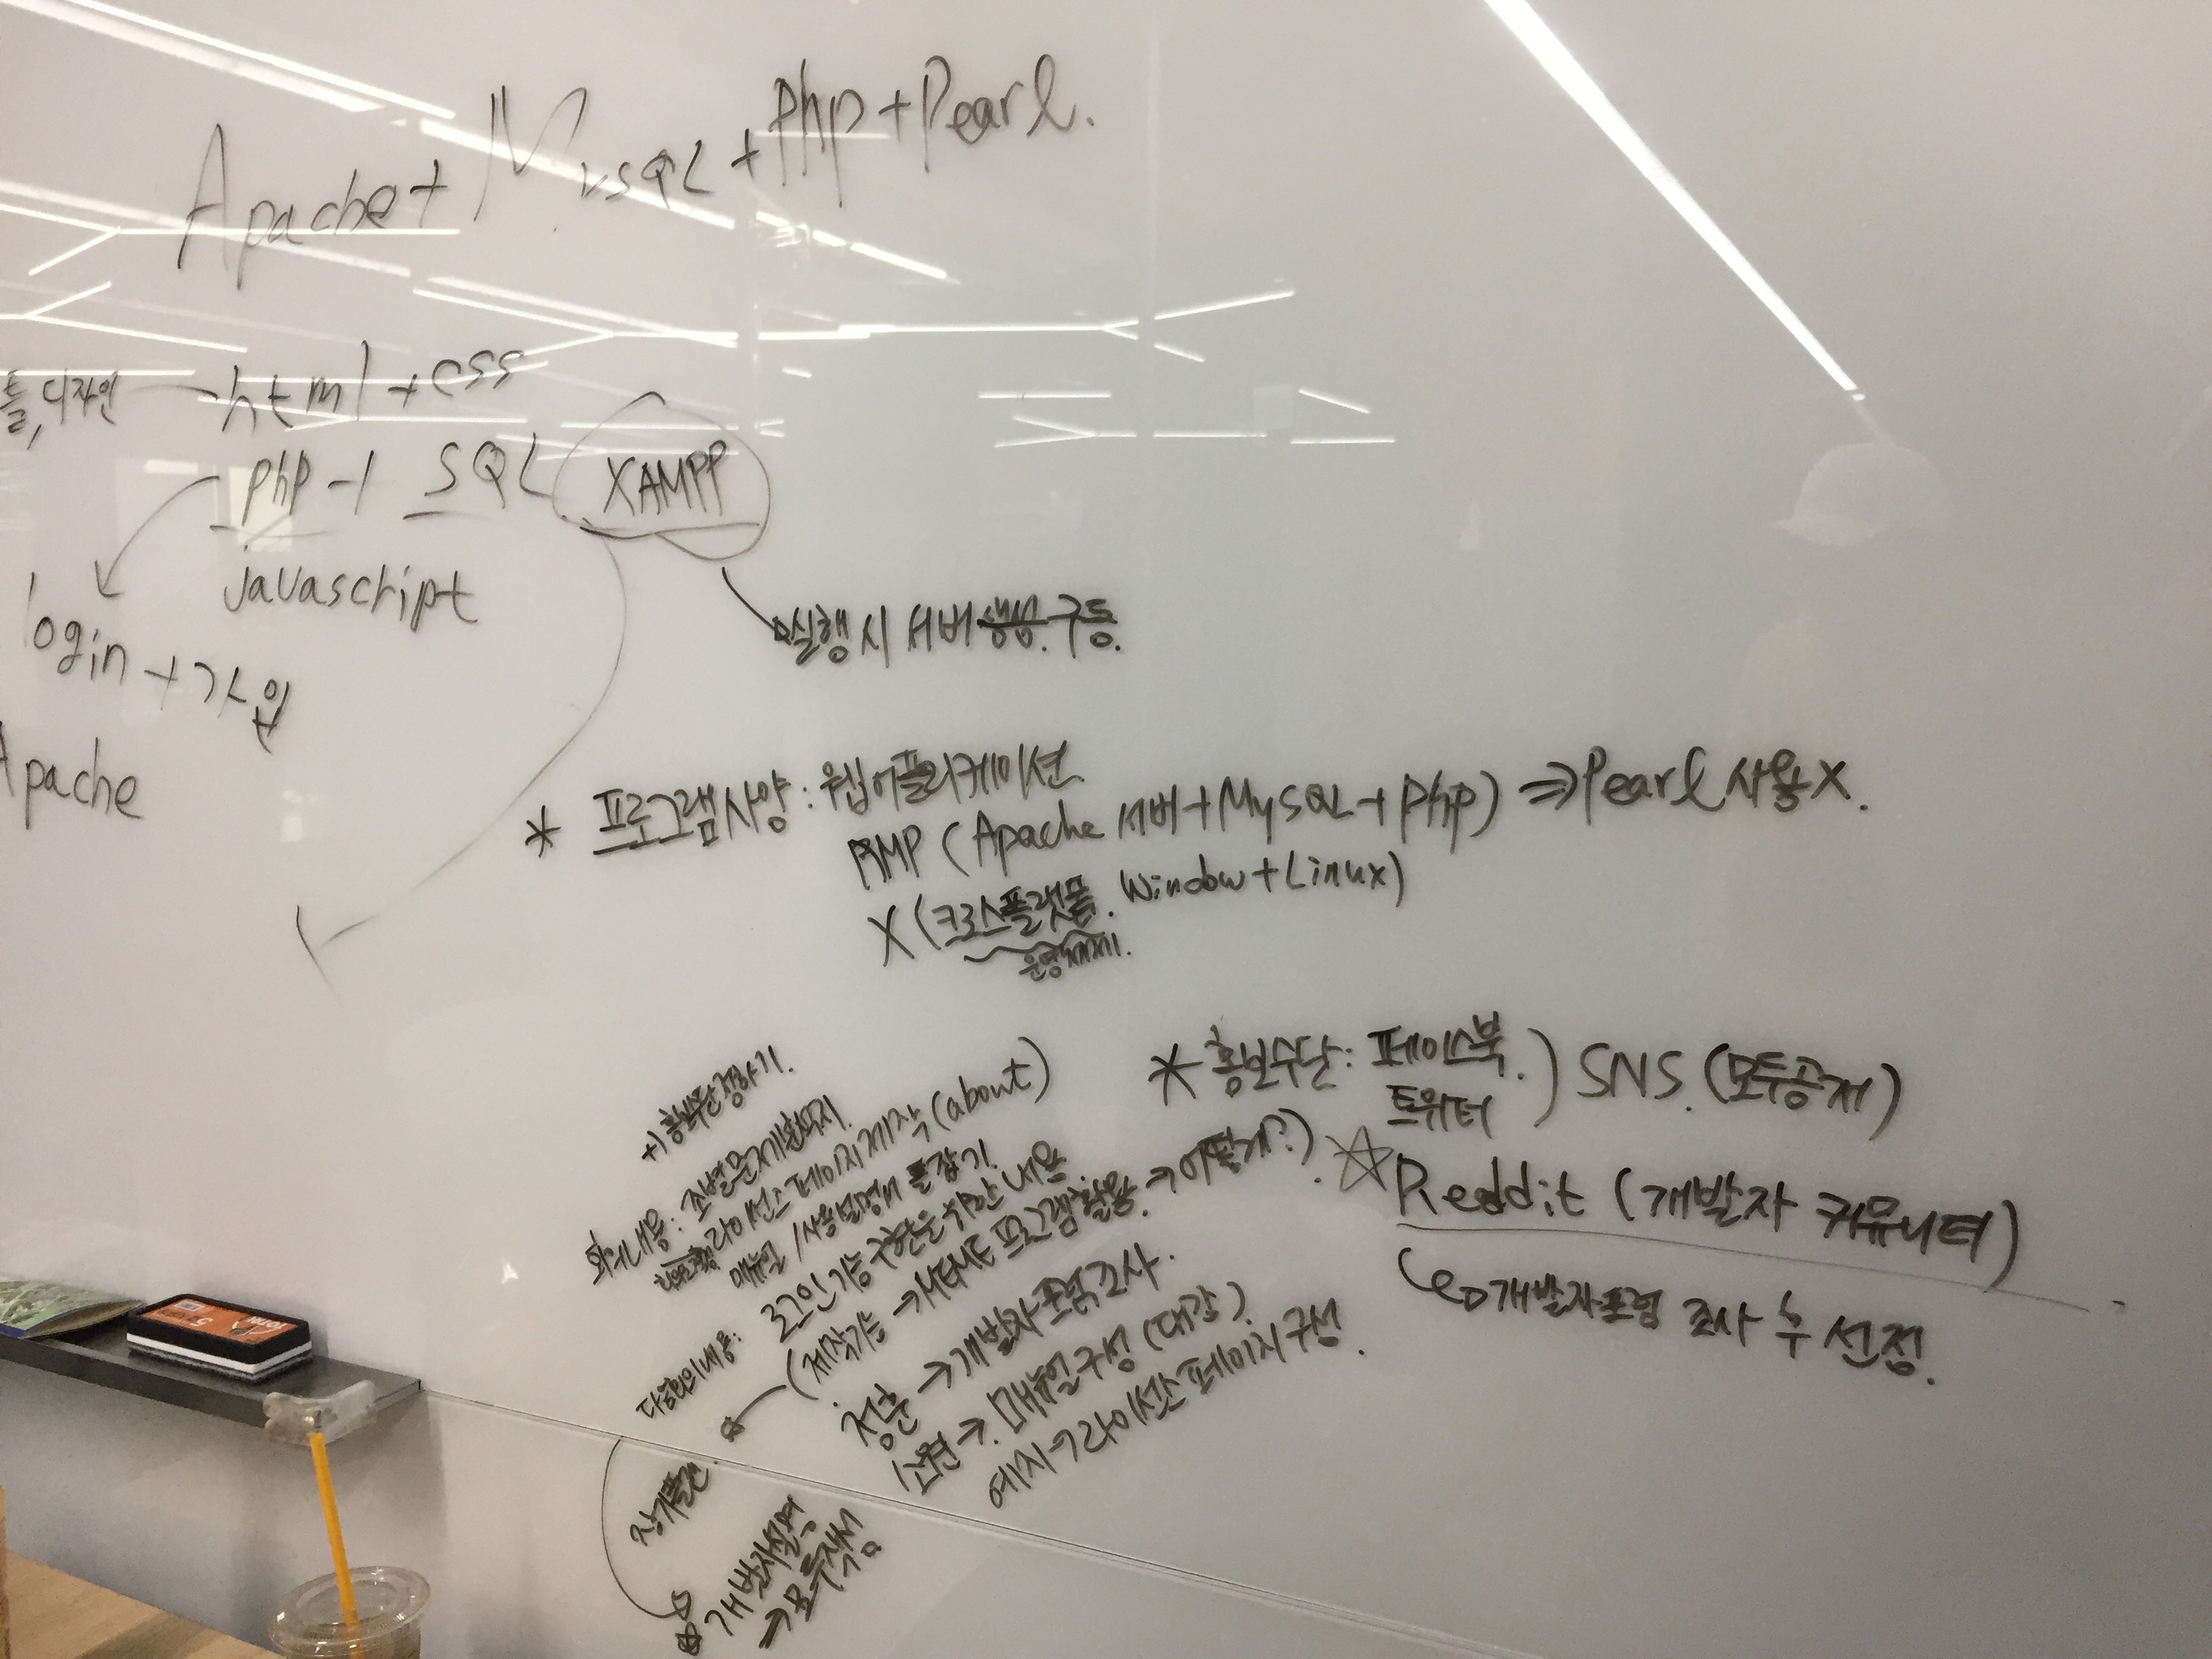 Apache + MySQL + php + Pearl.
틀, 디자인 html + css
php - SQL XAMPP
javascript
login + 가입
Apache
실행 시 서버 생성. 구동.
* 프로그램사양 : 웹어플리케이션
(Apache 서버 + MySQL + php) ⇒ Pearl 사용 X.
X (크로스플랫폼. Window + Linux)
운영체제.
* 홍보수단 : 페이스북. ) SNS. (모두공개)
트위터
☆ Reddit (개발자 커뮤니티)
개발자포럼 조사 후 선정.
+) 홍보수단정하기.
회의내용 : 조별문제
라이선스페이지제작 (about)
매뉴얼 / 사용설명서 틀잡기.
다음회의내용 : 로그인기능 구현을 위한 내용
(제작기능 → 프로그램활용. → 어떻게?)
정훈 → 개발자포럼조사.
→ 매뉴얼구성 (대강).
예지 → 라이선스페이지구성.
개발자설명
→ 모두작성